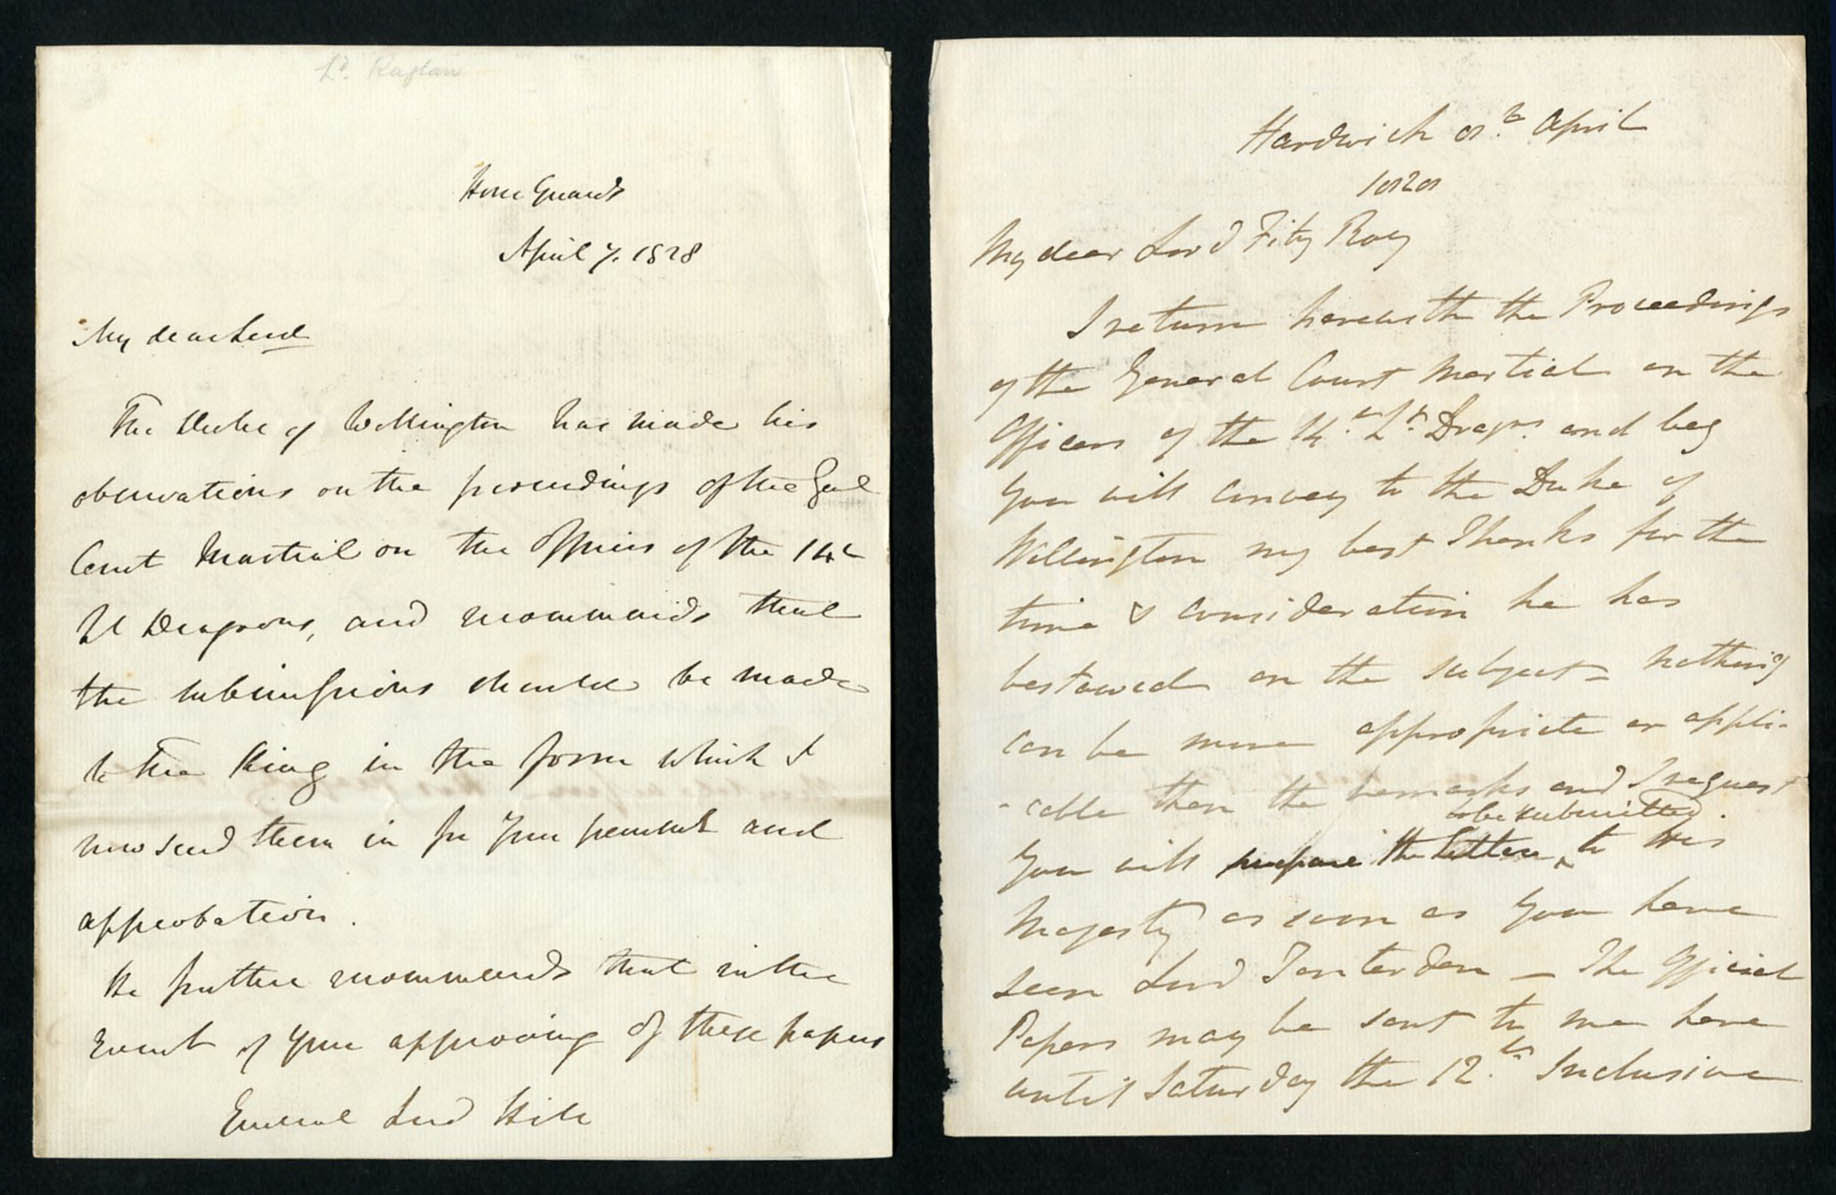 Ld. Raglan
Horse Guards
April 7. 1828
My dear Lord
The Duke of Wellington has made his
observations on the proceedings of the Genl
Court Martial on the Officers of the 14th
Lt Dragoons, and recommends that
the submissions should be made
to the King in the form which I
now send them in for your perusal and
approbation.
He further recommends that in the
event of your approving of these papers
General Lord Hill
Hardwich 8th April
1828
My dear Lord FitzRoy
I return herewith the Proceedings
of the General Court Martial on the
Officers of the 14th Lt Drags. and beg
you will convey to the Duke of
Wellington my best Thanks for the
time & consideration he has
bestowed on the subject - nothing
can be more appropriate or appli-
-cable than the remarks and I request
to be submitted
you will prepare the letters ^ to His
Majesty as soon as you have
seen Lord Tenterden - The Official
Papers may be sent to me here
until Saturday the 12th Inclusive